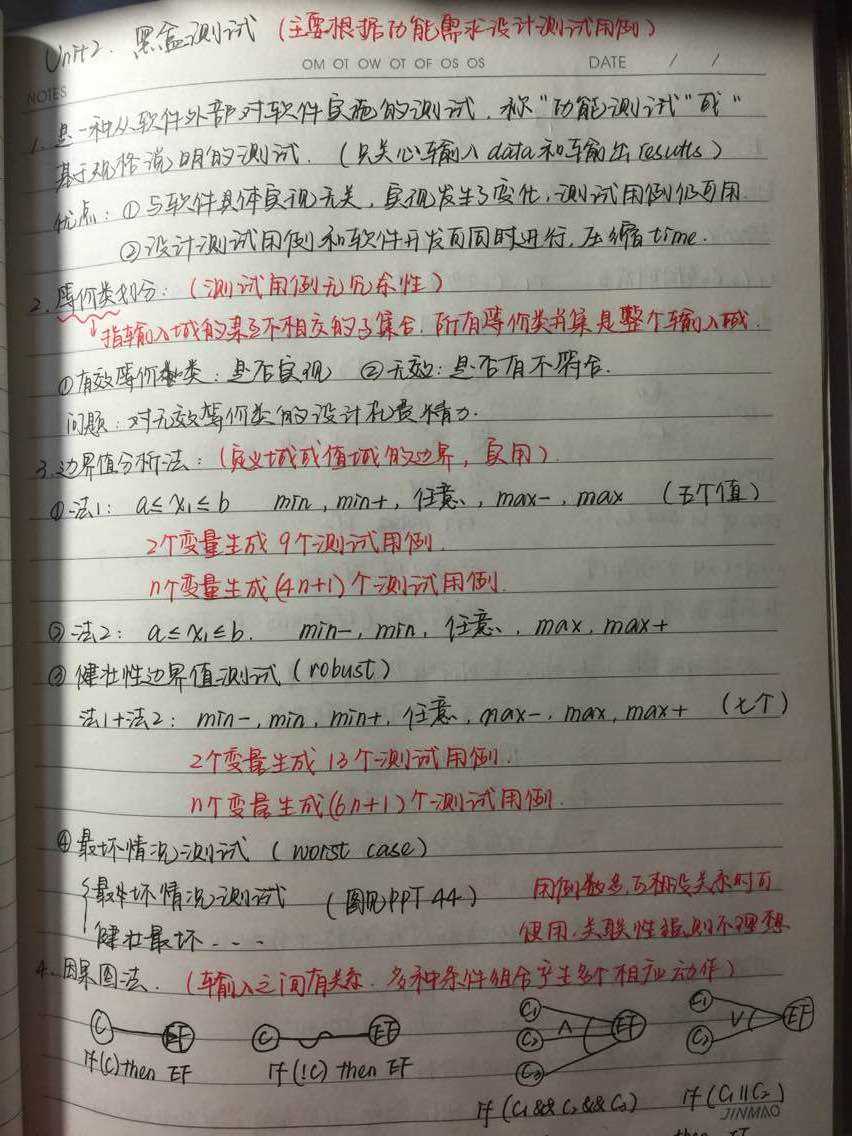 Unit 2. 黑盒测试 (主要根据功能需求设计测试用例)
OM OT OW OT OF OS OS DATE / /
NOTES
1. 是一种从软件外部对软件实施的测试, 称"功能测试"或"
基于规格说明的测试. (只关心输入data和输出results)
优点: ①与软件具体实现无关, 实现发生了变化, 测试用例仍可用
②设计测试用例和软件开发可同时进行, 压缩time.
2. 等价类划分: (测试用例无冗余性)
指输入域的某个不相交的子集合. 所有等价类并集是整个输入域.
①有效等价类: 是否实现 ②无效: 是否有不符合.
问题: 对无效等价类的设计花费精力.
3. 边界值分析法: (定义域或值域的边界, 实用)
①法1: a≤x₁≤b min, min+, 任意, max-, max (五个值)
2个变量生成9个测试用例.
n个变量生成(4n+1)个测试用例.
②法2: a≤x₁≤b. min-, min, 任意, max, max+
③健壮性边界值测试 (robust)
法1+法2: min-, min, min+, 任意, max-, max, max+ (七个)
2个变量生成13个测试用例.
n个变量生成(6n+1)个测试用例.
④最坏情况测试 (worst case)
最坏情况测试 (图见PPT 44) 用例数多, 互相没关系时可
健壮最坏... 使用, 关联性强, 则不理想
4. 因果图法. (输入之间有关系. 多种条件组合产生多个相应动作)
C EF C EF C₁ C₂ C₃ ∧ EF C₁ C₂ ∨ EF
If(C) then EF If(!C) then EF
If (C₁&&C₂&&C₃) If (C₁||C₂)
JINMAO
then EF